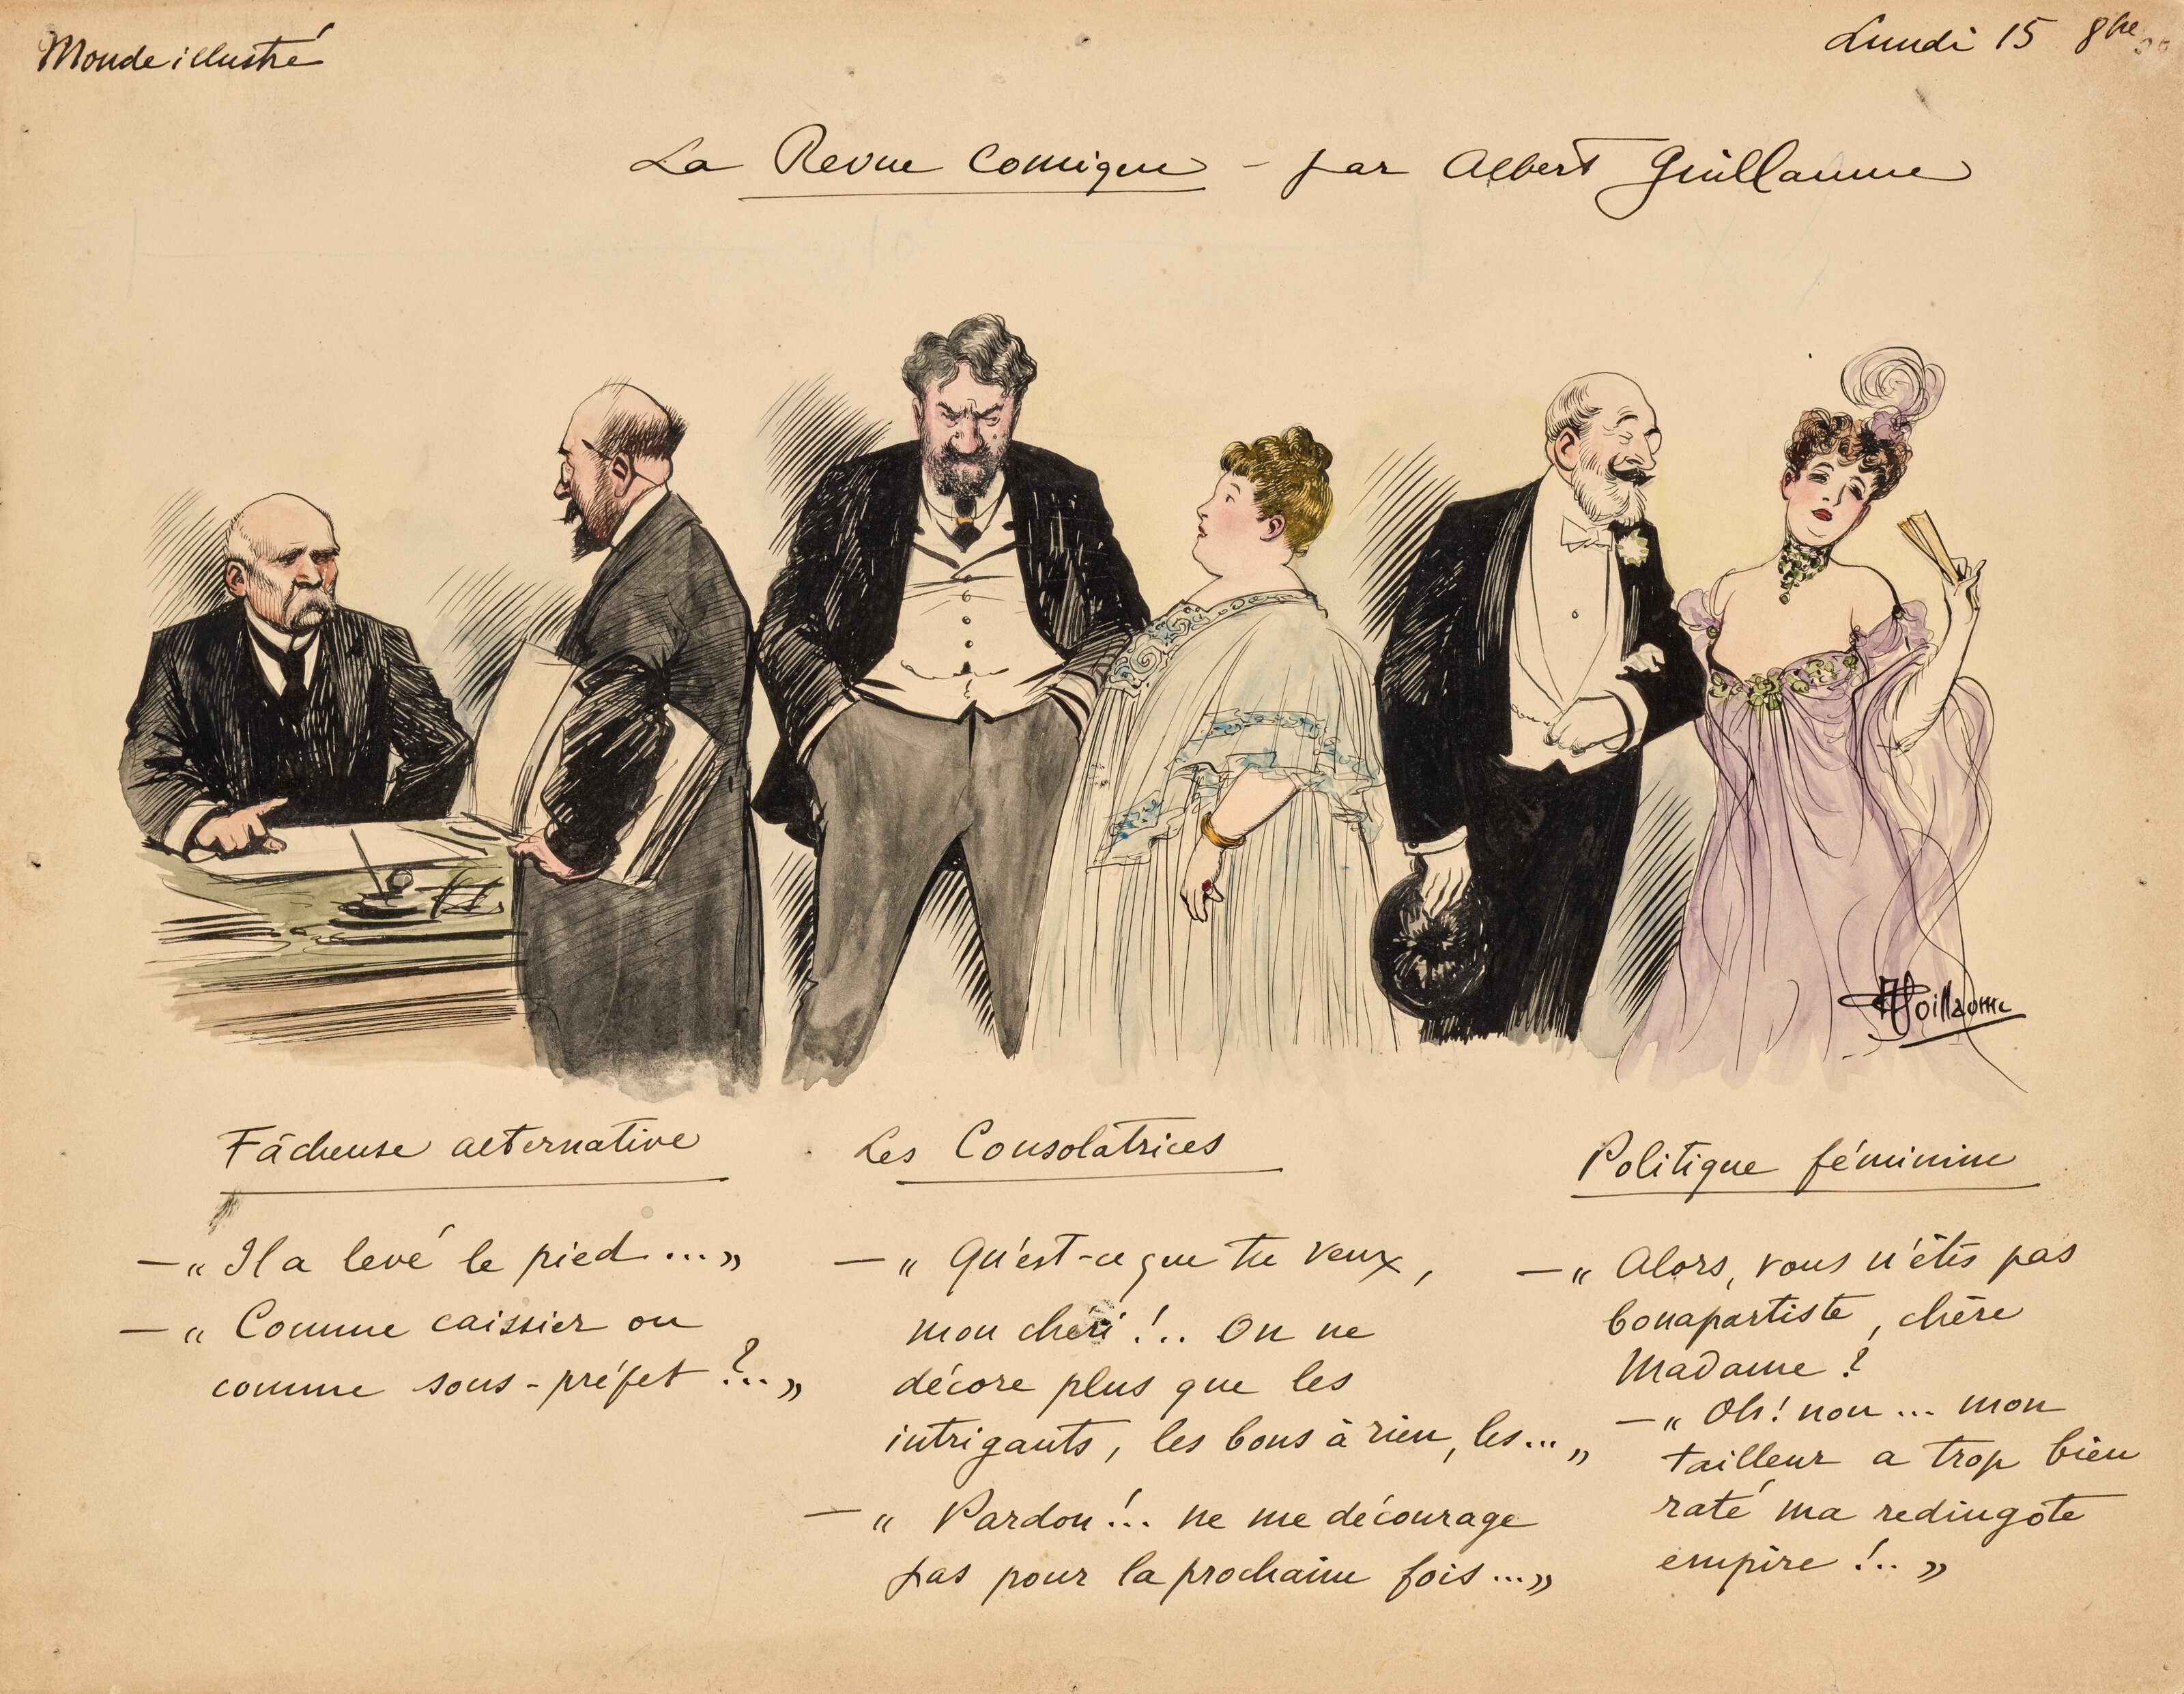 Monde illustré
Lundi 15 8bre
La Revue Comique - par Albert Guillaume
AGuillaume
Fâcheuse alternative
— « Il a levé le pied ... »
— « Comme caissier ou
comme sous-préfet ?.. »
Les Consolatrices
— « Qu'est-ce que tu veux,
mon chéri !.. On ne
décore plus que les
intrigants, les bons à rien, les... »
— « Pardon !.. ne me décourage
pas pour la prochaine fois ... »
Politique féminine
— « Alors, vous n'êtes pas
bonapartiste, chère
Madame ?
— « Oh ! non ... mon
tailleur a trop bien
raté ma redingote
empire !.. »